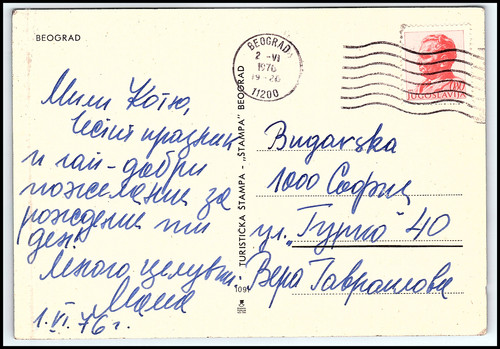 BEOGRAD
BEOGRAD
2-VI
1976
19-20
11200
JUGOSLAVIJA
Мили Котю,
Честит празник
и най-добри
пожелания за
рождения ти
ден!
Много целувки.
Мама
1.VI.76 г.
TURISTIČKA ŠTAMPA - "ŠTAMPA" BEOGRAD
109
Bugarska
1000 София
ул. „Гурко" 40
Вера Гавраилова